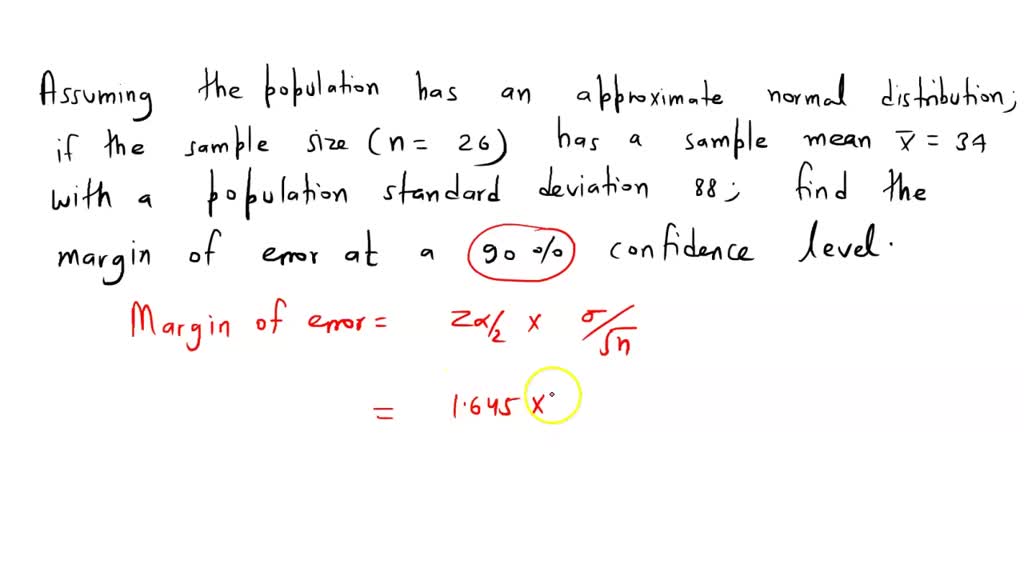 Assuming the population has an approximate normal distribution;
if the sample size (n = 26) has a sample mean x̄ = 34
with a population standard deviation 88; find the
margin of error at a 90% confidence level.
Margin of error = Zα/2 x σ/√n
= 1.645 x